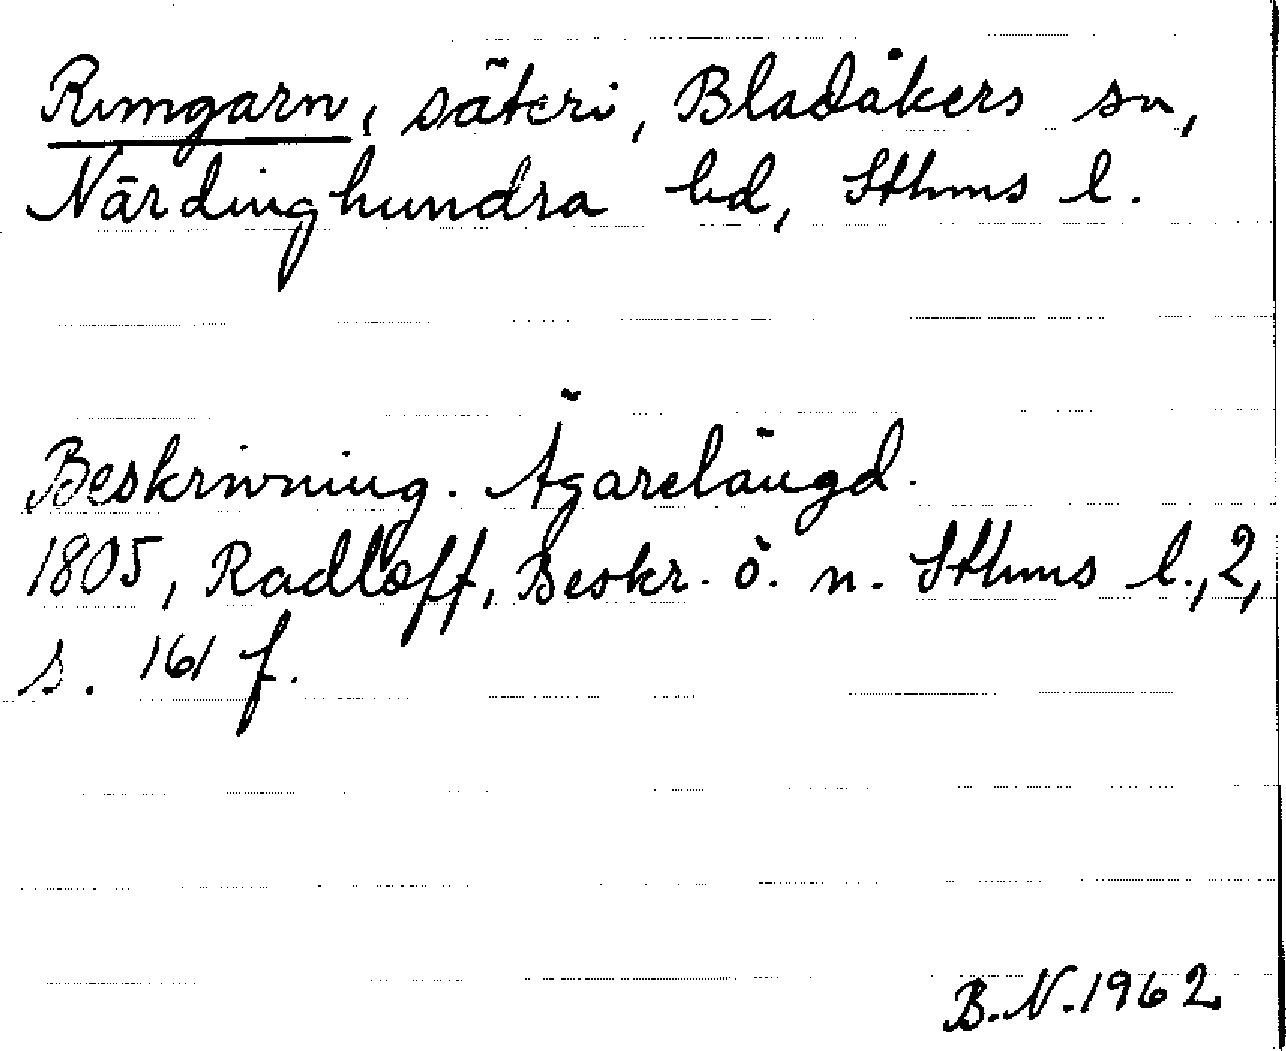 Rimgarn, säteri, Bladåkers sn,
Närdinghundra hd, Sthms l.
Beskrivning. Ägarelängd.
1805, Radloff, Beskr. ö. n. Sthms l., 2,
s. 161 f.
B.N. 1962